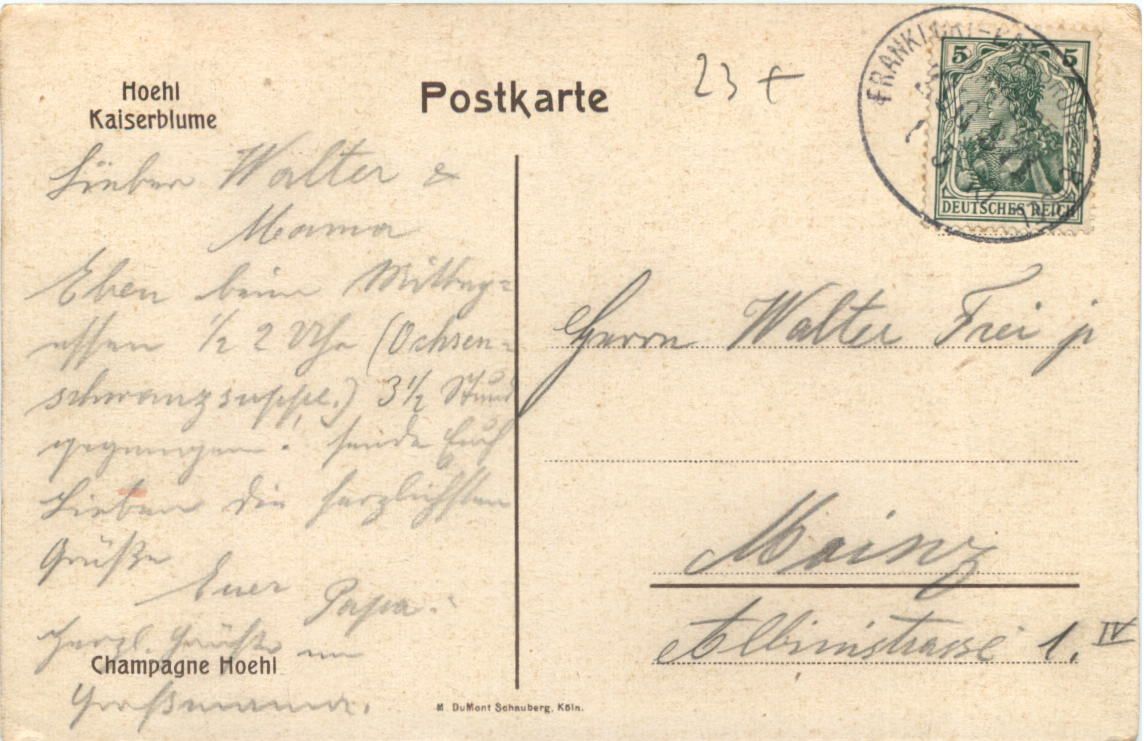 Hoehl
Kaiserblume
Postkarte
23 +
5 5
DEUTSCHES REICH
FRANKFURT
Lieber Walter &
Mama
Eben beim Mittag-
essen 1/2 2 Uhr (Ochsen-
schwanzsuppe.) 3 1/2 Stund
gegangen. sende Euch
Lieben die herzlichsten
Grüße
Euer Papa.
Herzl. Grüße an
Großmama.
Champagne Hoehl
M. DuMont Schauberg, Köln.
Herrn Walter Frei jr
Mainz
Albinistrasse 1. IV